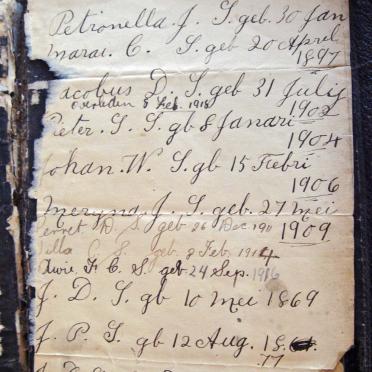 Petronella J. S. geb. 30 Jan
Marai. C. S. geb 20 April
1897
acobus D. S. geb 31 Julij
overleden 8 Feb. 1918
1902
Pieter. S. S. gb 8 Janari
1904
Johan. W. S. gb 15 Febri
1906
J. S. geb. 27 mei
1909
erret D. S. geb 26 Dec 190
illa C S. geb. 8 Feb. 1914
F. C. S. geb 24 Sep. 1916
J. D. S. gb 10 Mei 1869
J. P. S. gb 12 Aug. 18
77